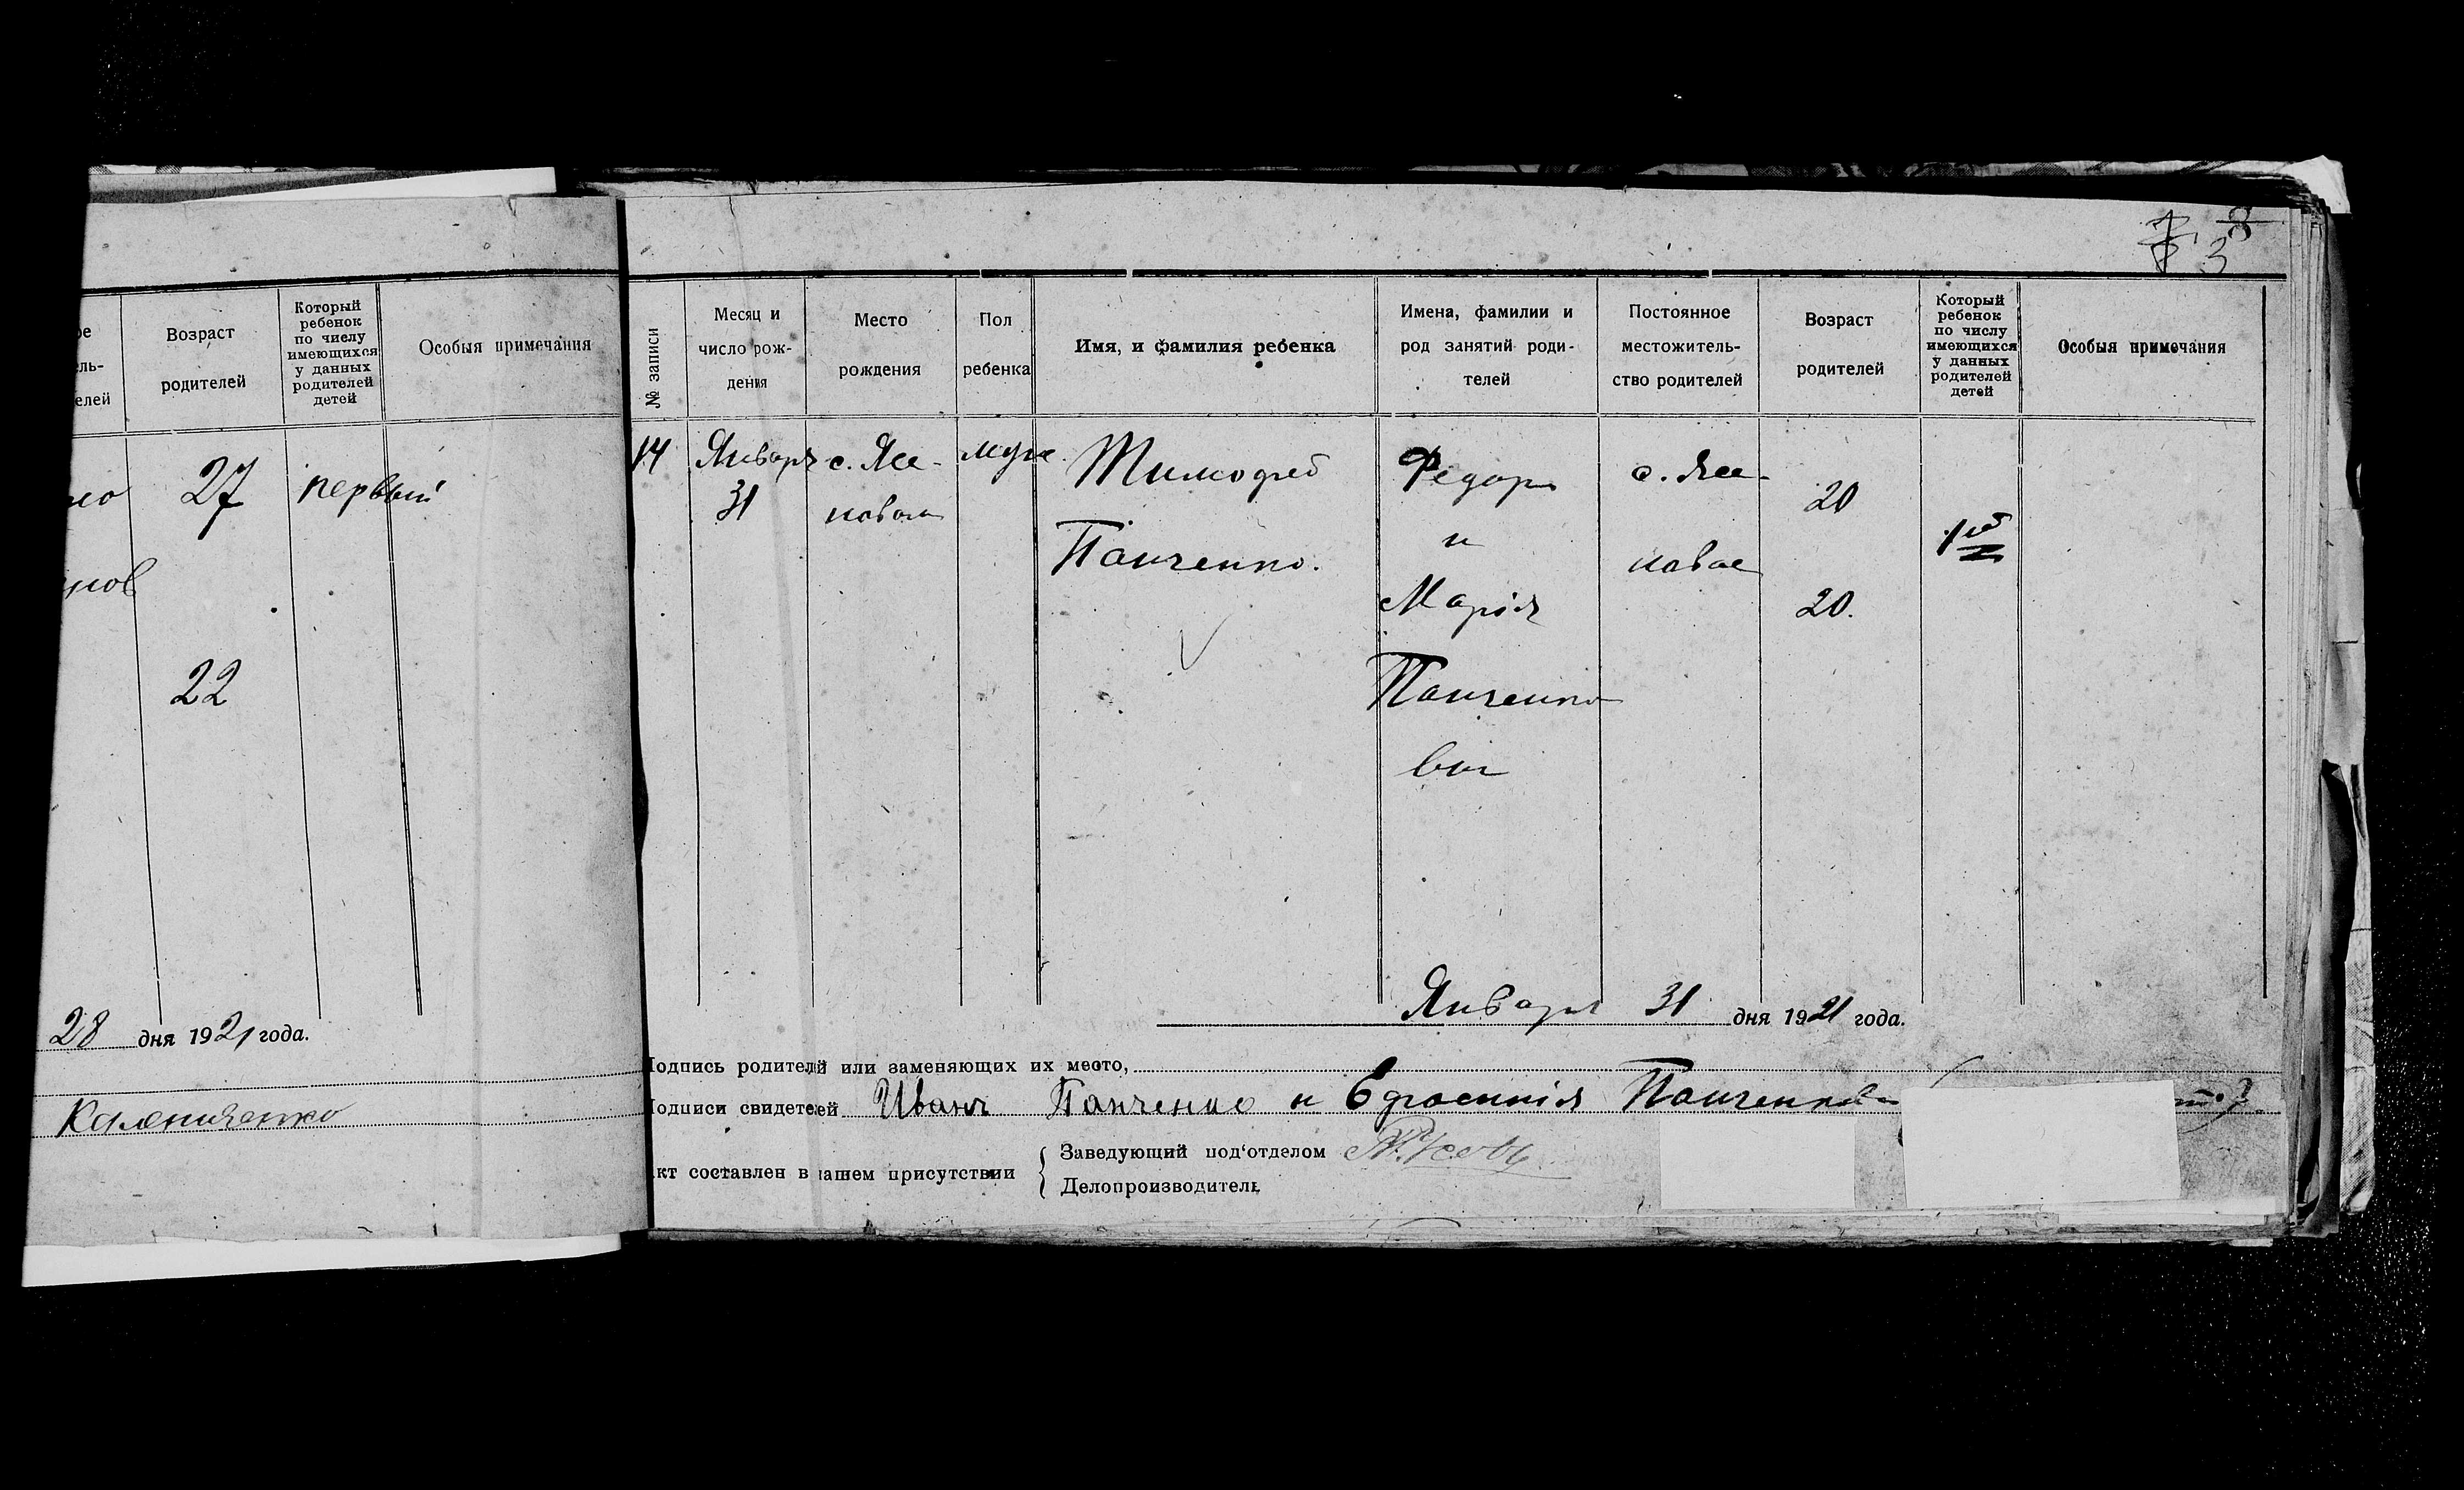 8
3
Возраст
родителей
Который
ребенок
по числу
имеющихся
у данных
родителей
детей
Особыя примечания
27
первый
22
28 дня 1921 года.
Калениченко
№ записи
Месяц и
число рож-
дения
Место
рождения
Пол
ребенка
Имя, и фамилия ребенка
Имена, фамилии и
род занятий роди-
телей
Постоянное
местожитель-
ство родителей
Возраст
родителей
Который
ребенок
по числу
имеющихся
у данных
родителей
детей
Особыя примечания
14
Январь
31
с.
муж.
Тимофей
Панченко.
Федоръ
и
Марія
Панченко
вы
с.
20
20.
1ый
Января 31 дня 1921 года.
Подпись родителей или заменяющих их место,
Подписи свидетелей Иванъ Панченко и Ефросинія Панченкова
Акт составлен в нашем присутствии
Заведующий под'отделом
Делопроизводитель